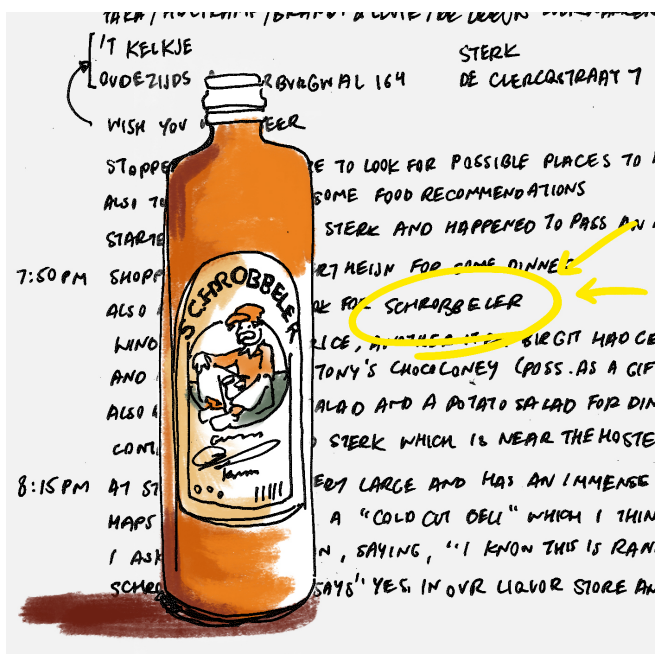 'T KELKJE
STERK
OUDEZIJDS RBURGWAL 164
DE CLERCQSTRAAT 7
WISH YOU EER
STOPPE E TO LOOK FOR POSSIBLE PLACES TO
ALSO TO SOME FOOD RECOMMENDATIONS
STARTE STERK AND HAPPENED TO PASS AN
7:50 PM SHOPP RT HEIJN FOR SOME DINNER
ALSO K FOR SCHROBBELER
WINO RICE, ANOTHER ITEM BIRGIT HAD
AND TONY'S CHOCOLONEY (POSS. AS A GIF
ALSO ALAD AND A POTATO SALAD FOR DIN
CONT STERK WHICH IS NEAR THE HOSTE
8:15 PM AT ST ERY LARGE AND HAS AN IMMENSE
HAPS A "COLD CUT DELI" WHICH I THIN
I ASK N, SAYING, "I KNOW THIS IS RAN
SCHRO SAYS "YES, IN OUR LIQUOR STORE AN
SCHROBBELER